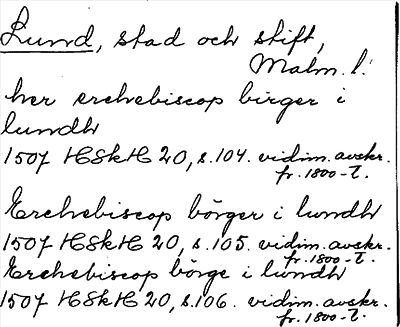 Lund, stad och stift,
Malm. l.
her erchebiscop birger i
lundh
1507 HSkH 20, s.104. vidim. avskr.
fr. 1800-t.
Erchebiscop börger i lundh
1507 HSkH 20, s.105. vidim. avskr.
fr. 1800-t.
Erchebiscop börge i lundh
1507 HSkH 20, s.106. vidim. avskr.
fr. 1800-t.